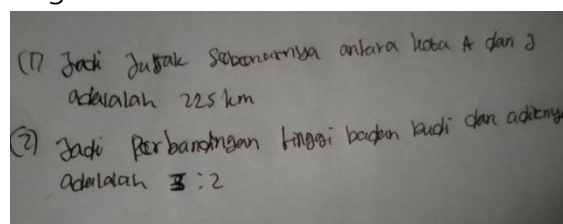 (1) Jadi Jarak Sebenarnya antara kota A dan J
adalalah 225 km
(2) Jadi Perbandingan tinggi badan budi dan adiknya
adalalah 3 : 2